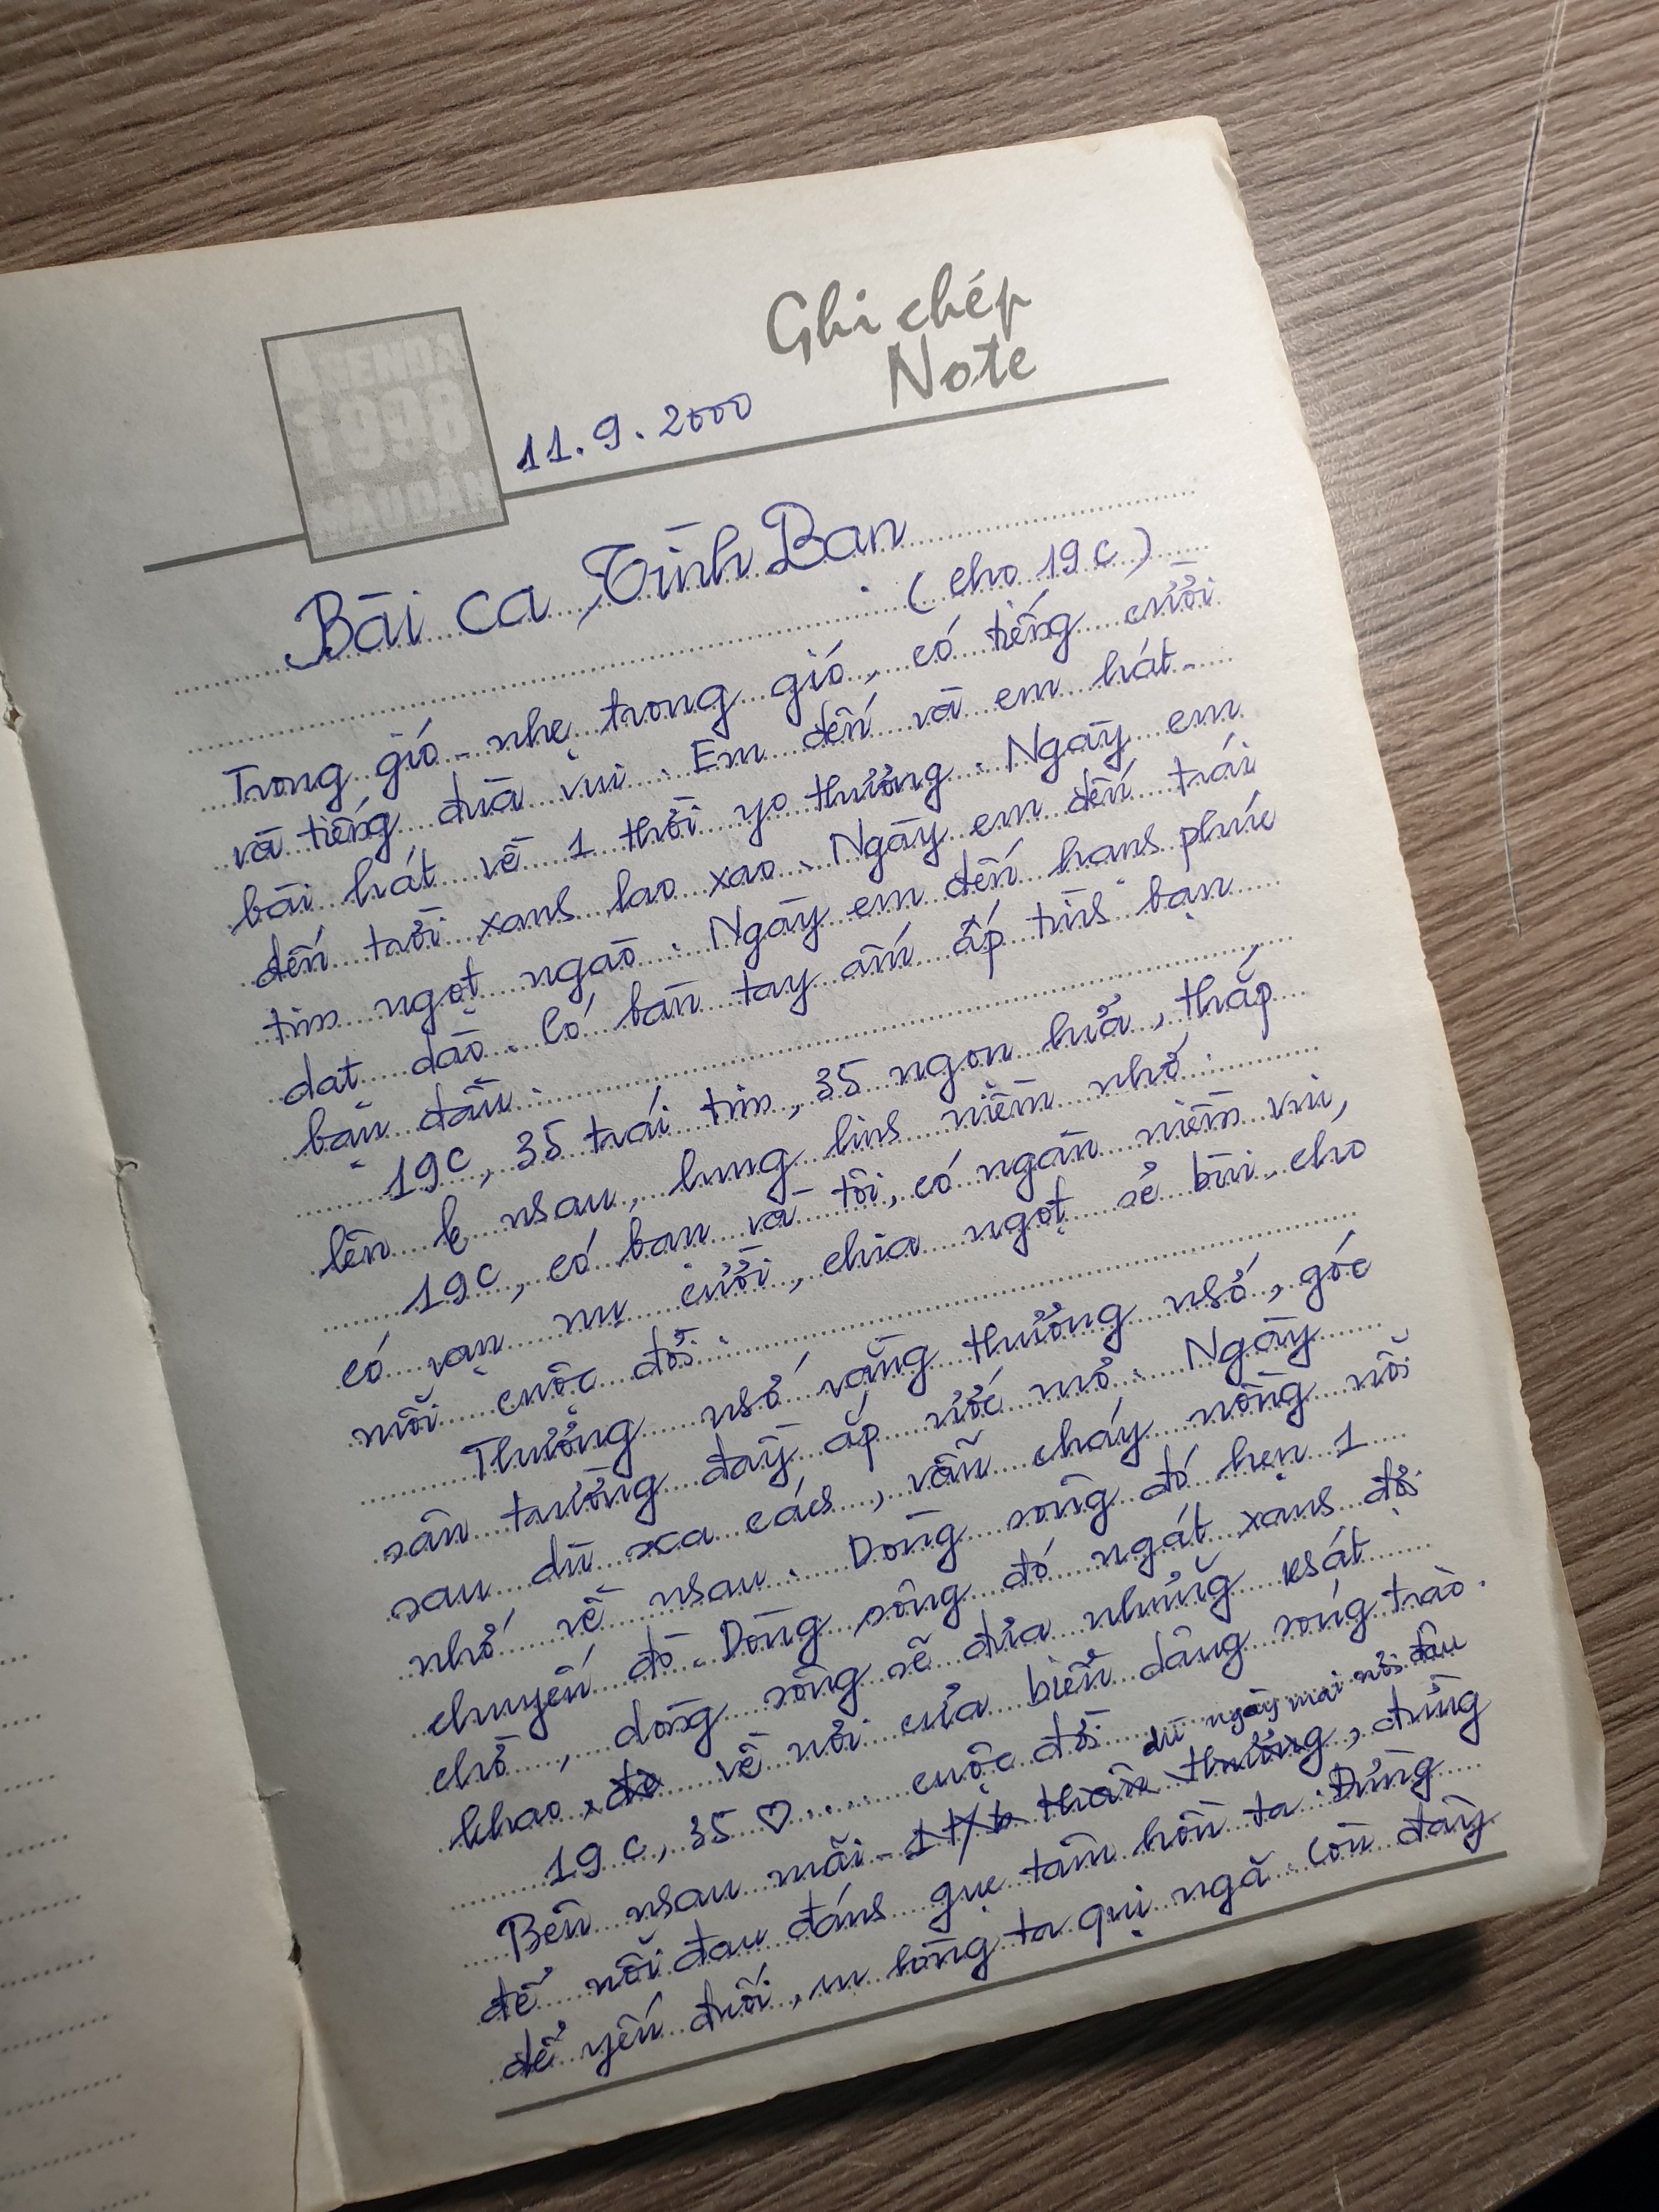 Ghi chép
Note
AGENDA
1998
MẬU DẦN
11.9.2000
Bài ca Tình Bạn
(cho 19c)
Trong gió - nhẹ trong gió, có tiếng cười
và tiếng đùa vui. Em đến và em hát
bài hát về 1 thời yo thương. Ngày em
đến trời xanh lao xao. Ngày em đến trái
tim ngọt ngào. Ngày em đến hạnh phúc
dạt dào. Có bàn tay ấm áp tình bạn
ban đầu.
19c, 35 trái tim, 35 ngọn lửa, thắp
lên nhau, lung linh niềm nhớ.
19c, có bạn và tôi, có ngàn niềm vui,
có vạn nụ cười, chia ngọt sẻ bùi cho
mỗi cuộc đời.
Thương nhớ vầng thương nhớ, góc
sân trường đầy ắp ước mơ. Ngày
sau dù xa cách, vẫn cháy nồng nỗi
nhớ về nhau. Dòng sông đó hẹn 1
chuyến đò. Dòng sông đó ngát xanh đợi
chờ, dòng sông sẽ đưa những khát
khao, để về nơi của biển dâng sóng trào.
19c, 35 ♡..... cuộc đời
dù ngày mai nơi đâu
Bên nhau mãi - 1 thân thương, đừng
để nỗi đau đánh gục tâm hồn ta. Đừng
để yếu đuối, lòng ta quị ngã. Còn đây